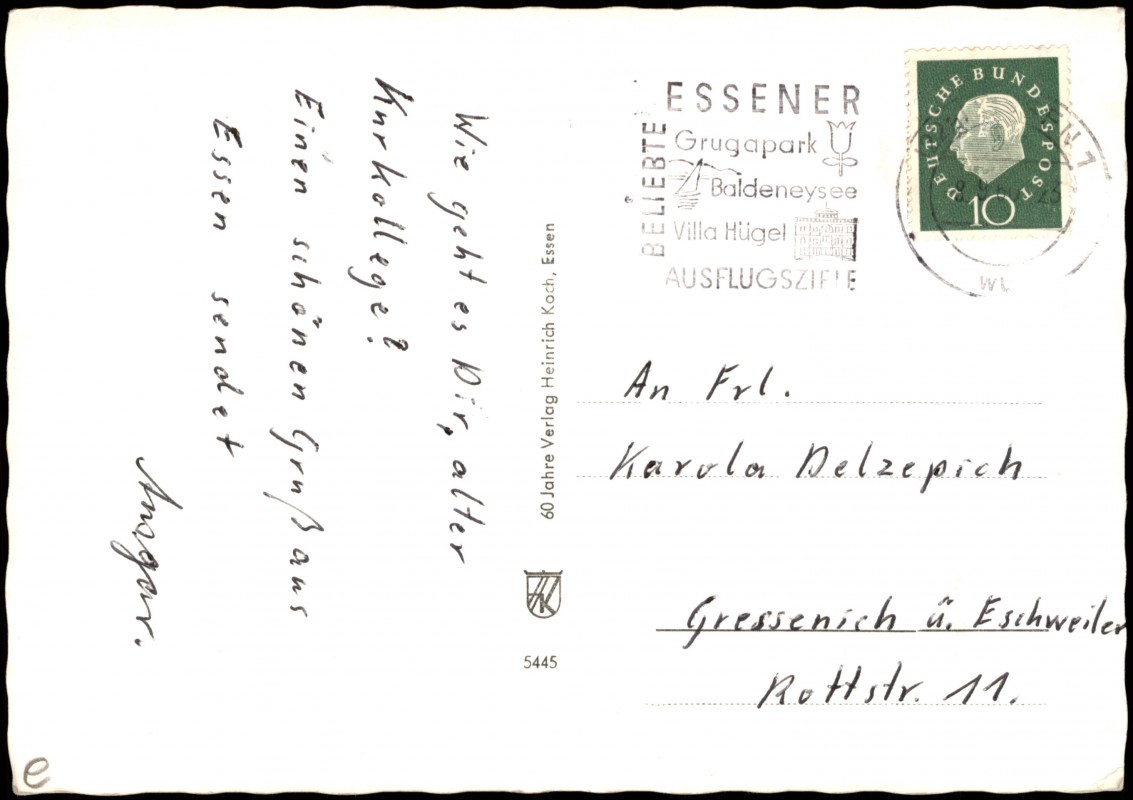 Wie geht es Dir, alter
Kurkollege?
Einen schönen Gruß aus
Essen sendet
60 Jahre Verlag Heinrich Koch, Essen
5445
BELIEBTE
ESSENER
Grugapark
Baldeneysee
Villa Hügel
AUSFLUGSZIELE
DEUTSCHE BUNDESPOST
10
An Frl.
Karola Delzepich
Gressenich ü. Eschweiler
Rottstr. 11.
e